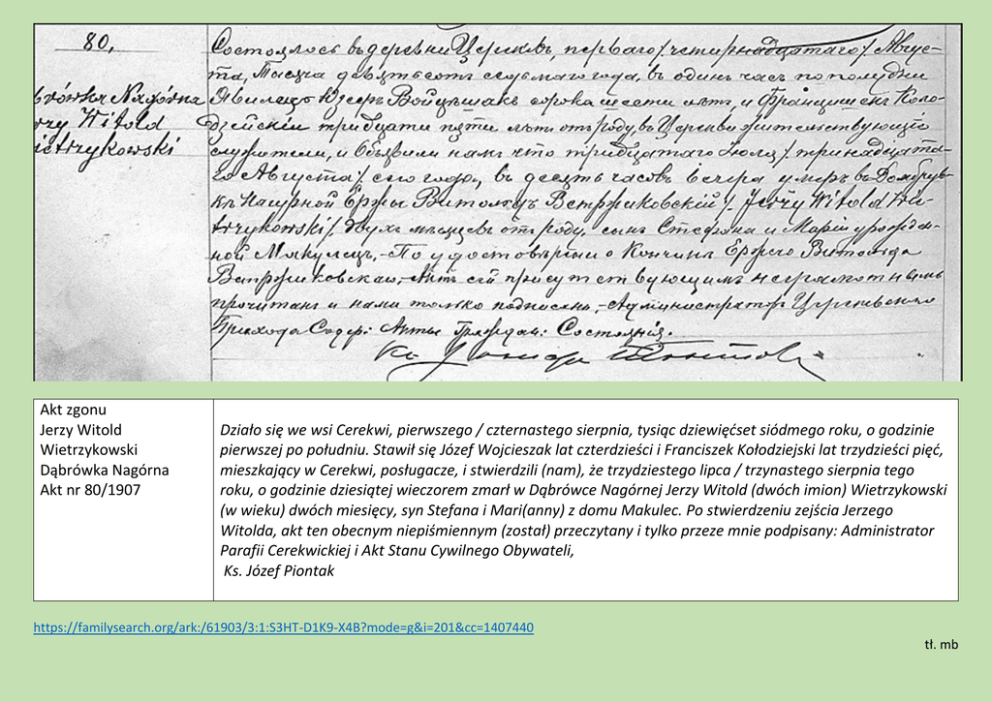 80,
Nagórna
rzy Witold
ietrzykowski
Состоялось въ деревни Церековь, перваго /четырнадцатаго/ Авгус-
та, Тысяча девятьсотъ седьмаго года, въ одинъ часъ по полудни
Явились Юзефъ Войцѣшакъ сорока шести лѣтъ, и Францишекъ Коло-
дзейскіи тридцати пяти лѣтъ отъ роду, въ Церекви жительствующіе
служители, и объявили намъ что тридцатаго Іюля /тринадцата-
го Августа/ сего года, въ десять часовъ вечера умеръ въ Домбрув-
къ Нагурной Ержи Витольдъ Ветржиковскій / Jerzy Witold Wie-
trzykowski/ двухъ мѣсяцевъ отъ роду, сынъ Стефана и Маріи урожден-
ной Макулецъ,- По удостовѣреніи о Кончинѣ Ержего Витольда
Ветржиковскаго, Актъ сей присутствующимъ неграмотнымъ
прочитанъ и нами только подписанъ,- Администраторъ Церекевскаго
Прихода Содер: Акты Граждан: Состоянія.
Кс.
Akt zgonu
Jerzy Witold
Wietrzykowski
Dąbrówka Nagórna
Akt nr 80/1907
Działo się we wsi Cerekwi, pierwszego / czternastego sierpnia, tysiąc dziewięćset siódmego roku, o godzinie
pierwszej po południu. Stawił się Józef Wojcieszak lat czterdzieści i Franciszek Kołodziejski lat trzydzieści pięć,
mieszkający w Cerekwi, posługacze, i stwierdzili (nam), że trzydziestego lipca / trzynastego sierpnia tego
roku, o godzinie dziesiątej wieczorem zmarł w Dąbrówce Nagórnej Jerzy Witold (dwóch imion) Wietrzykowski
(w wieku) dwóch miesięcy, syn Stefana i Mari(anny) z domu Makulec. Po stwierdzeniu zejścia Jerzego
Witolda, akt ten obecnym niepiśmiennym (został) przeczytany i tylko przeze mnie podpisany: Administrator
Parafii Cerekwickiej i Akt Stanu Cywilnego Obywateli,
Ks. Józef Piontak
https://familysearch.org/ark:/61903/3:1:S3HT-D1K9-X4B?mode=g&i=201&cc=1407440
tł. mb